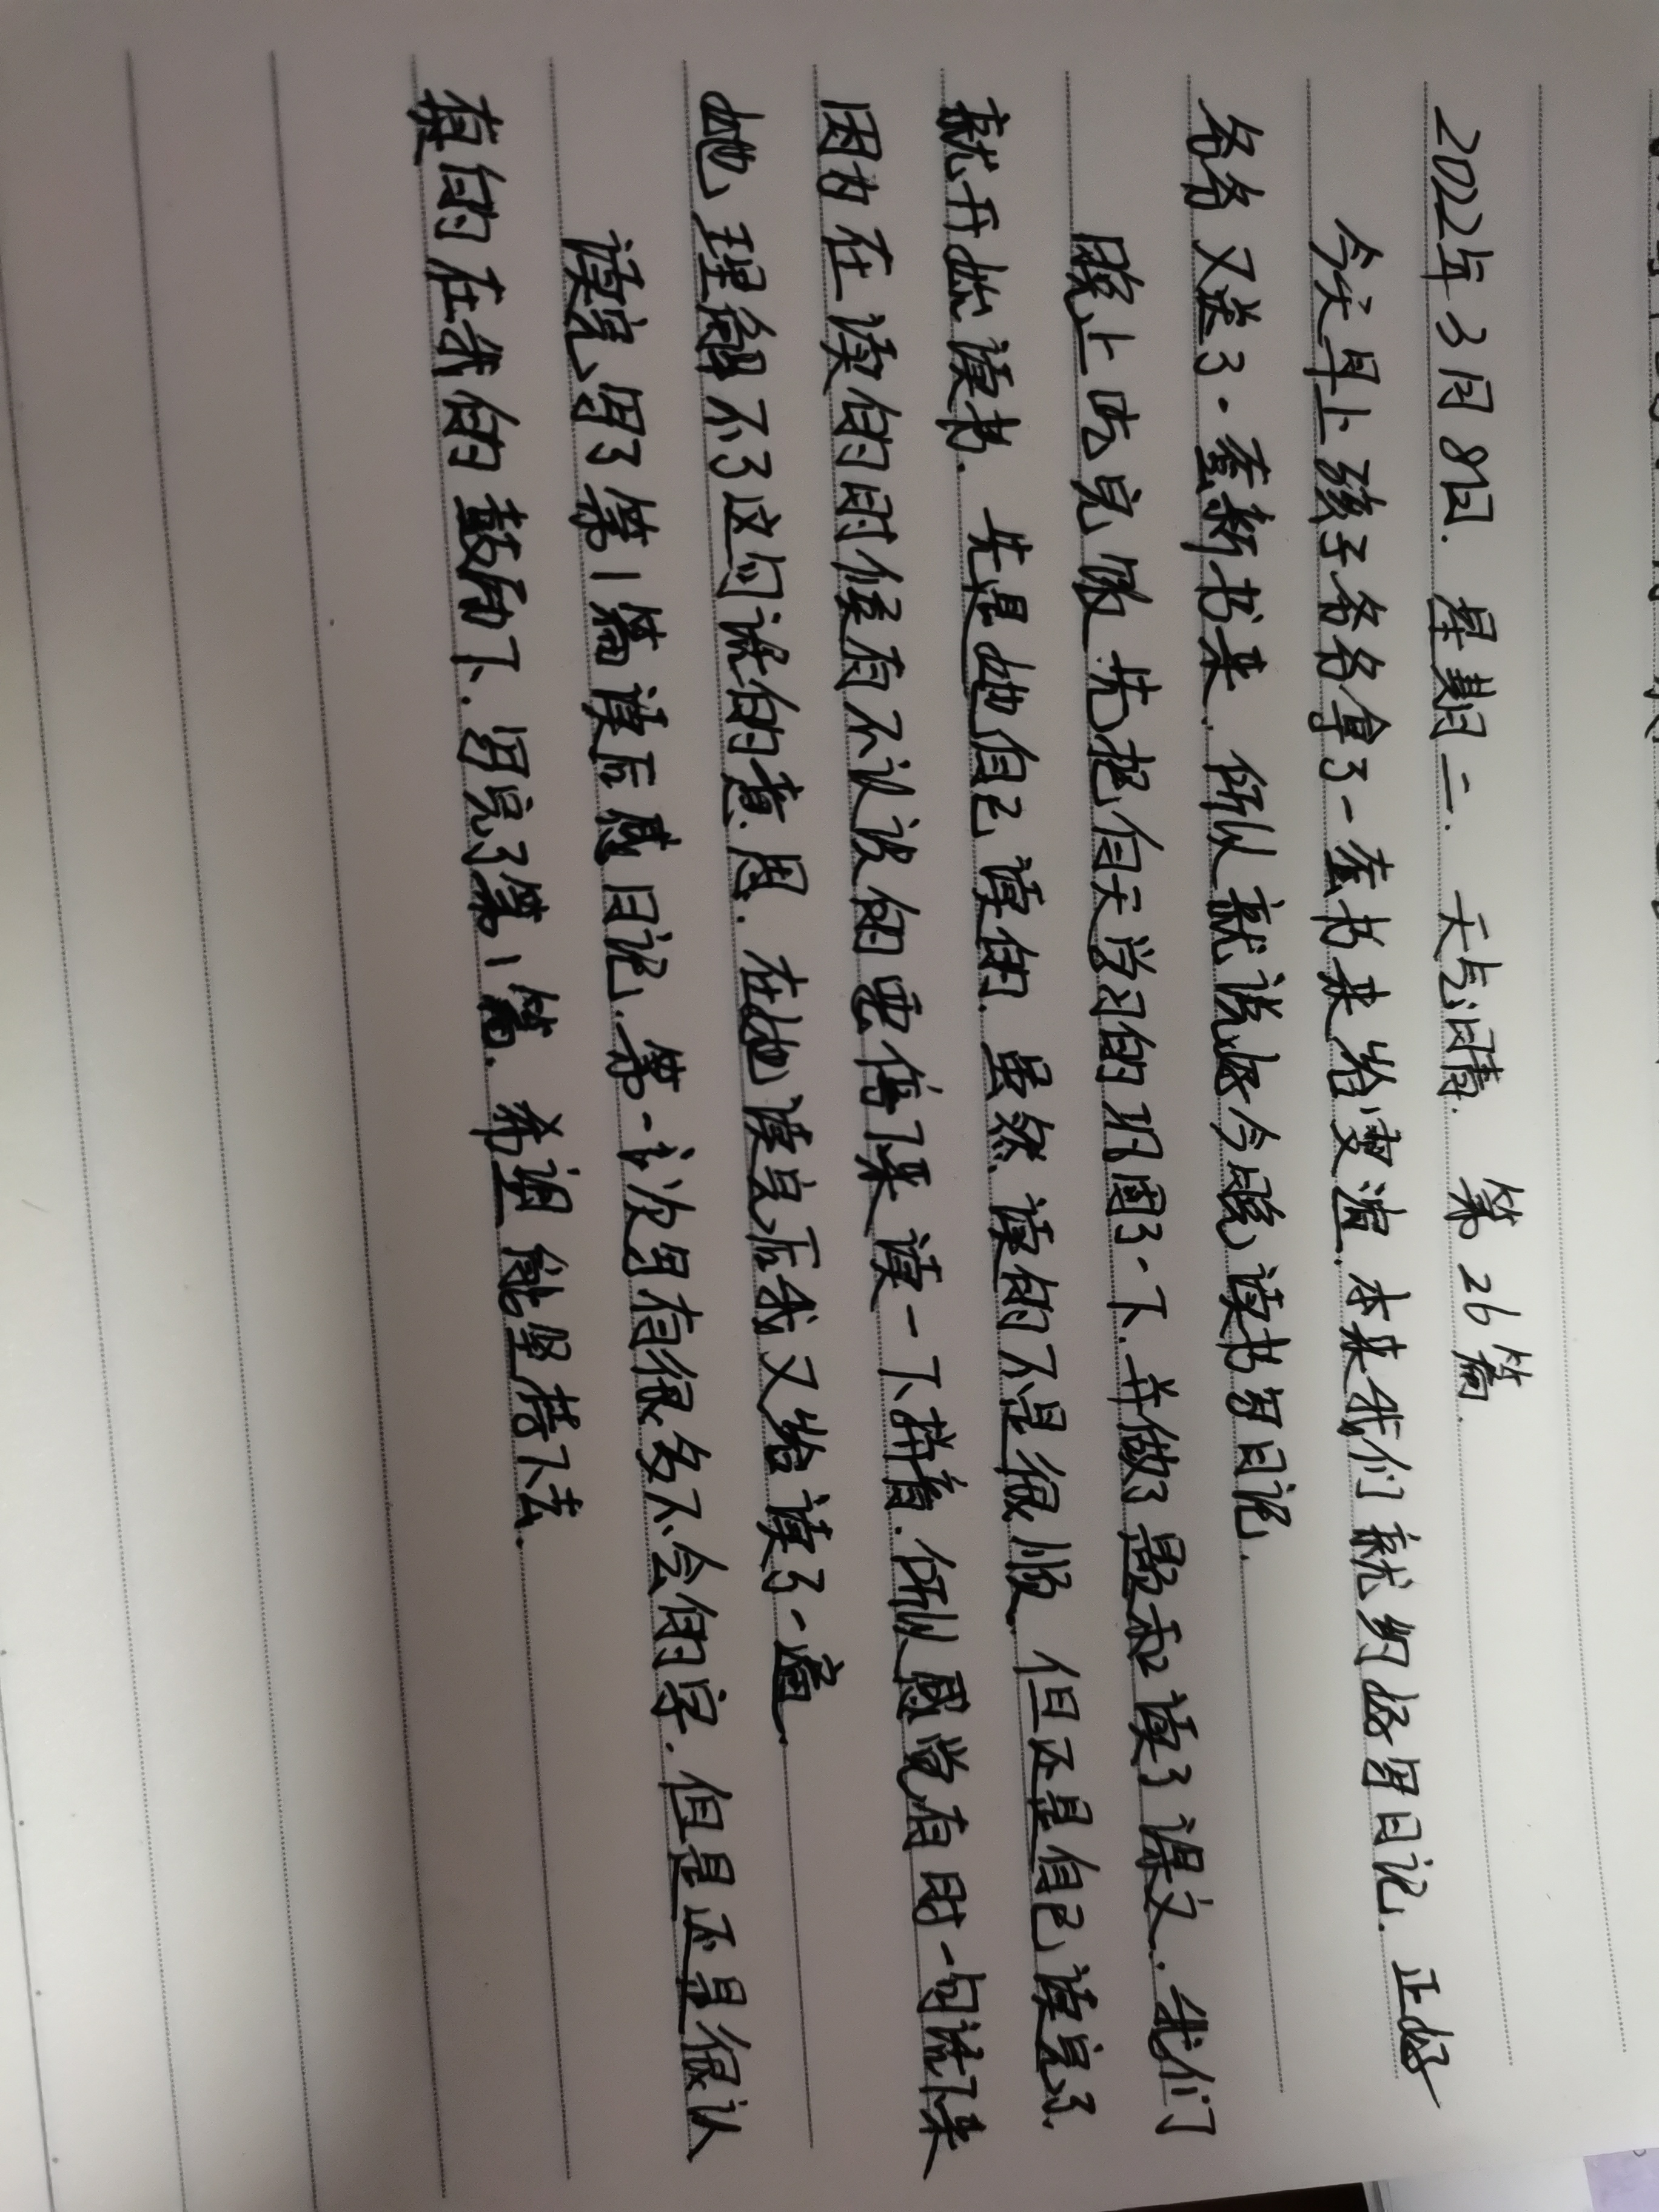 2022年3月8日. 星期二. 天气:晴. 第26篇.
今天早上孩子爸爸拿了一套书来给雯渲. 本来我们就约好写日记. 正好
爸爸又送了一套新书来. 所以就说好今晚读书写日记.
晚上吃完饭先把白天学习的巩固了一下. 并做了题和读了课文. 我们
就开始读书. 先是她自己读的. 虽然读的不是很顺. 但还是自己读完了.
因为在读的时候有不认识的要停下来读一下拼音. 所以感觉有时一句话下来
她理解不了这句话的意思. 在她读完后我又给读了一遍.
读完写了第1篇读后感日记. 第一次写有很多不会的字. 但是还是很认
真的在我的鼓励下. 写完了第1篇. 希望能坚持下去.